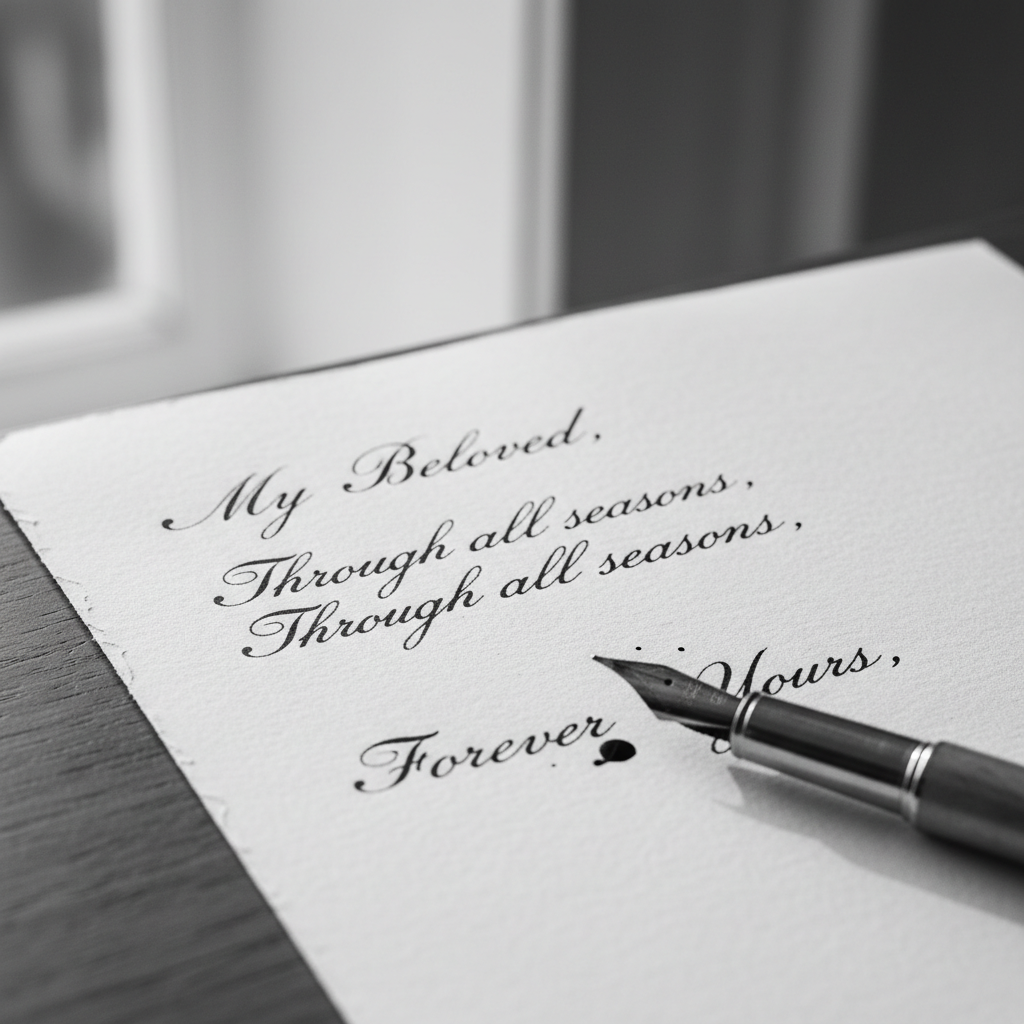 My Beloved,
Through all seasons,
Through all seasons,
Forever Yours,